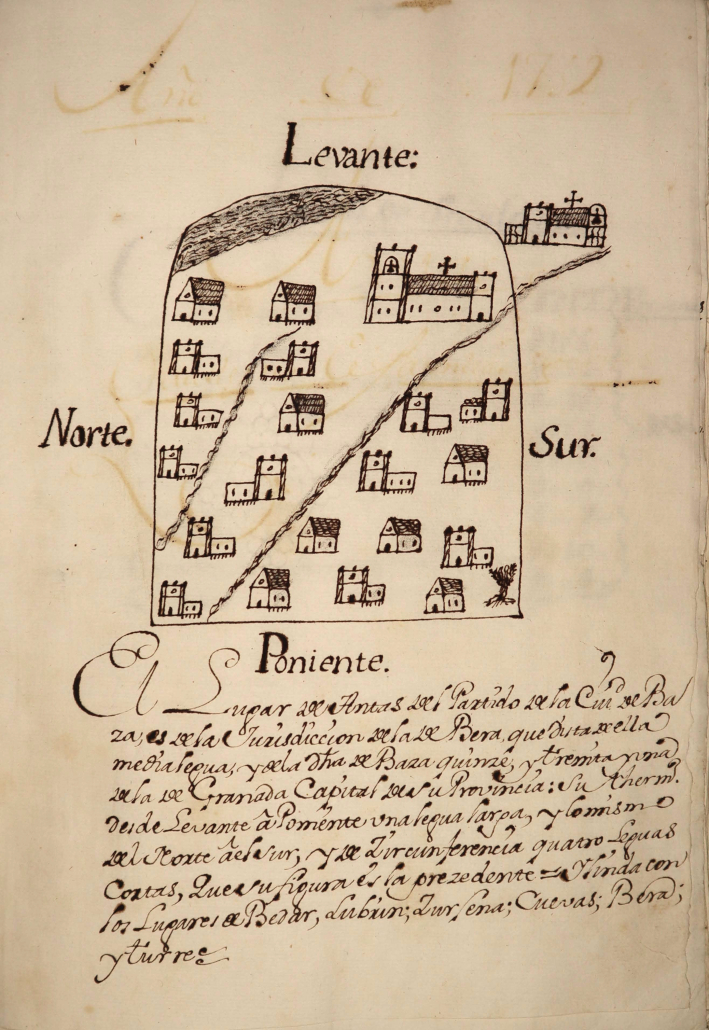 Año de 1752
Levante:
Norte.
Sur.
Poniente.
El Lugar de Antas del Partido de la Ciud de Ba
za, es de la Jurisdiccion de la de Bera, que dista de ella
media legua, y de la dha de Baza quinze, y treinta y una
de la de Granada Capital de su Provincia: Su thermo.
desde Levante à Poniente vna legua larga, y lo mismo
del Norte àel sur, y de Zircunferencia quatro leguas
Cortas, Que su figura és la prezedente = Y linda con
los Lugares de Bedar, Lubrin; Zurjena; Cuevas; Bera;
y turre =